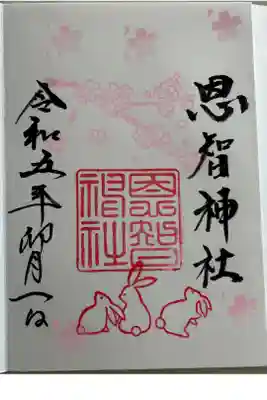 恩智神社
恩智
神社
令和五年卯月一日